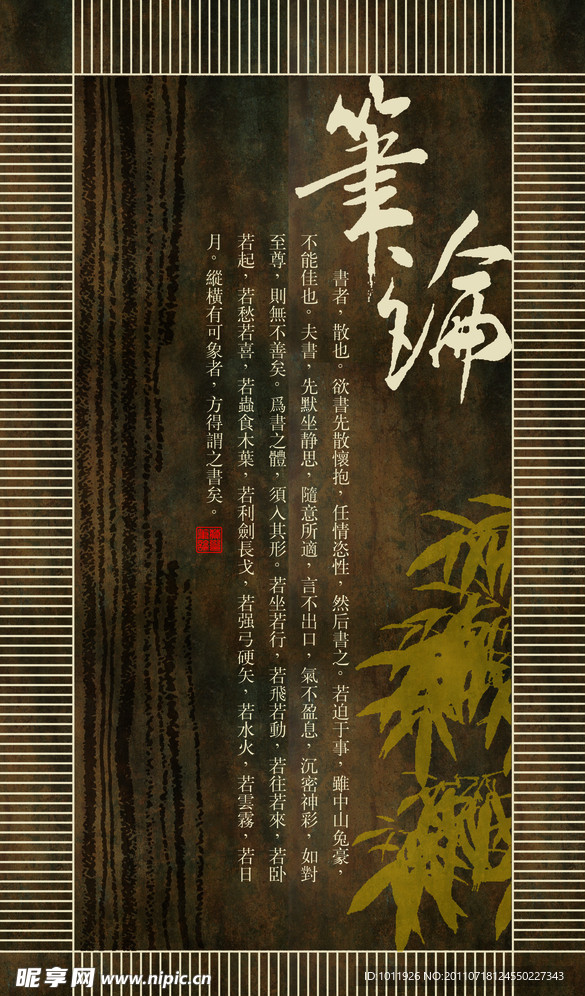 筆論
書者，散也。欲書先散懷抱，任情恣性，然后書之。若迫于事，雖中山兔豪，
不能佳也。夫書，先默坐静思，隨意所適，言不出口，氣不盈息，沉密神彩，如對
至尊，則無不善矣。爲書之體，須入其形。若坐若行，若飛若動，若往若來，若卧
若起，若愁若喜，若蟲食木葉，若利劍長戈，若强弓硬矢，若水火，若雲霧，若日
月。縱橫有可象者，方得謂之書矣。
昵享网 www.nipic.cn
ID:1011926 NO:20110718124550227343